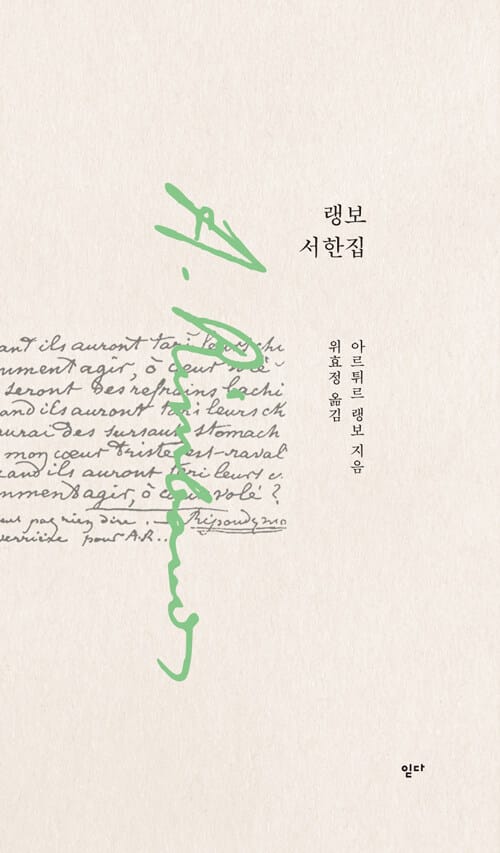 랭보
서한집
아르튀르 랭보 지음
위효정 옮김
A. Rimbaud
ant ils auront tari leurs chi
mment agir, ô cœur volé
seront des refrains bachi
and ils auront tari leurs ch
urai des sursauts stomach
mon cœur triste est raval
and ils auront tari leurs c
mment agir, ô cœur volé ?
pas rien dire. Répondez mo
derrière pour A.R..
읻다